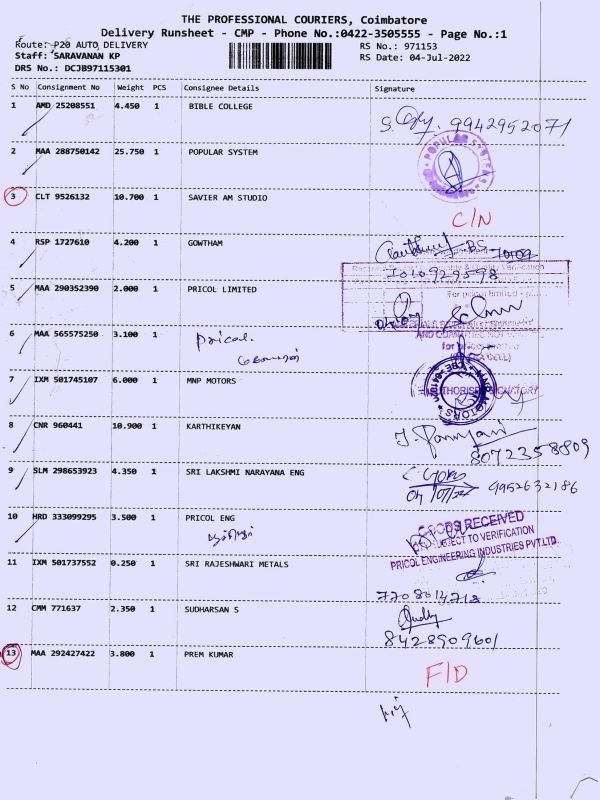 THE PROFESSIONAL COURIERS, Coimbatore
Delivery Runsheet - CMP - Phone No.:0422-3505555 - Page No.:1
Route: P20 AUTO DELIVERY RS No.: 971153
Staff: SARAVANAN KP RS Date: 04-Jul-2022
DRS No.: DCJB97115301
S No Consignment No Weight PCS Consignee Details Signature
1 AMD 25208551 4.450 1 BIBLE COLLEGE
9942952071
2 MAA 288750142 25.750 1 POPULAR SYSTEM
POPULAR SYSTEMS
3 CLT 9526132 10.700 1 SAVIER AM STUDIO
C/N
4 RSP 1727610 4.200 1 GOWTHAM
5 MAA 290352390 2.000 1 PRICOL LIMITED
For pricol limited
6 MAA 565575250 3.100 1 pricol.
7 IXM 501745107 6.000 1 MNP MOTORS
AUTHORISED SIGNATORY
MNP MOTORS
8 CNR 960441 10.900 1 KARTHIKEYAN
8072358809
9 SLM 298653923 4.350 1 SRI LAKSHMI NARAYANA ENG
9952632186
10 HRD 333099295 3.500 1 PRICOL ENG
GOODS RECEIVED
SUBJECT TO VERIFICATION
PRICOL ENGINEERING INDUSTRIES PVT.LTD.
11 IXM 501737552 0.250 1 SRI RAJESHWARI METALS
7708014718
12 CMM 771637 2.350 1 SUDHARSAN S
8428909601
13 MAA 292427422 3.800 1 PREM KUMAR
F/D